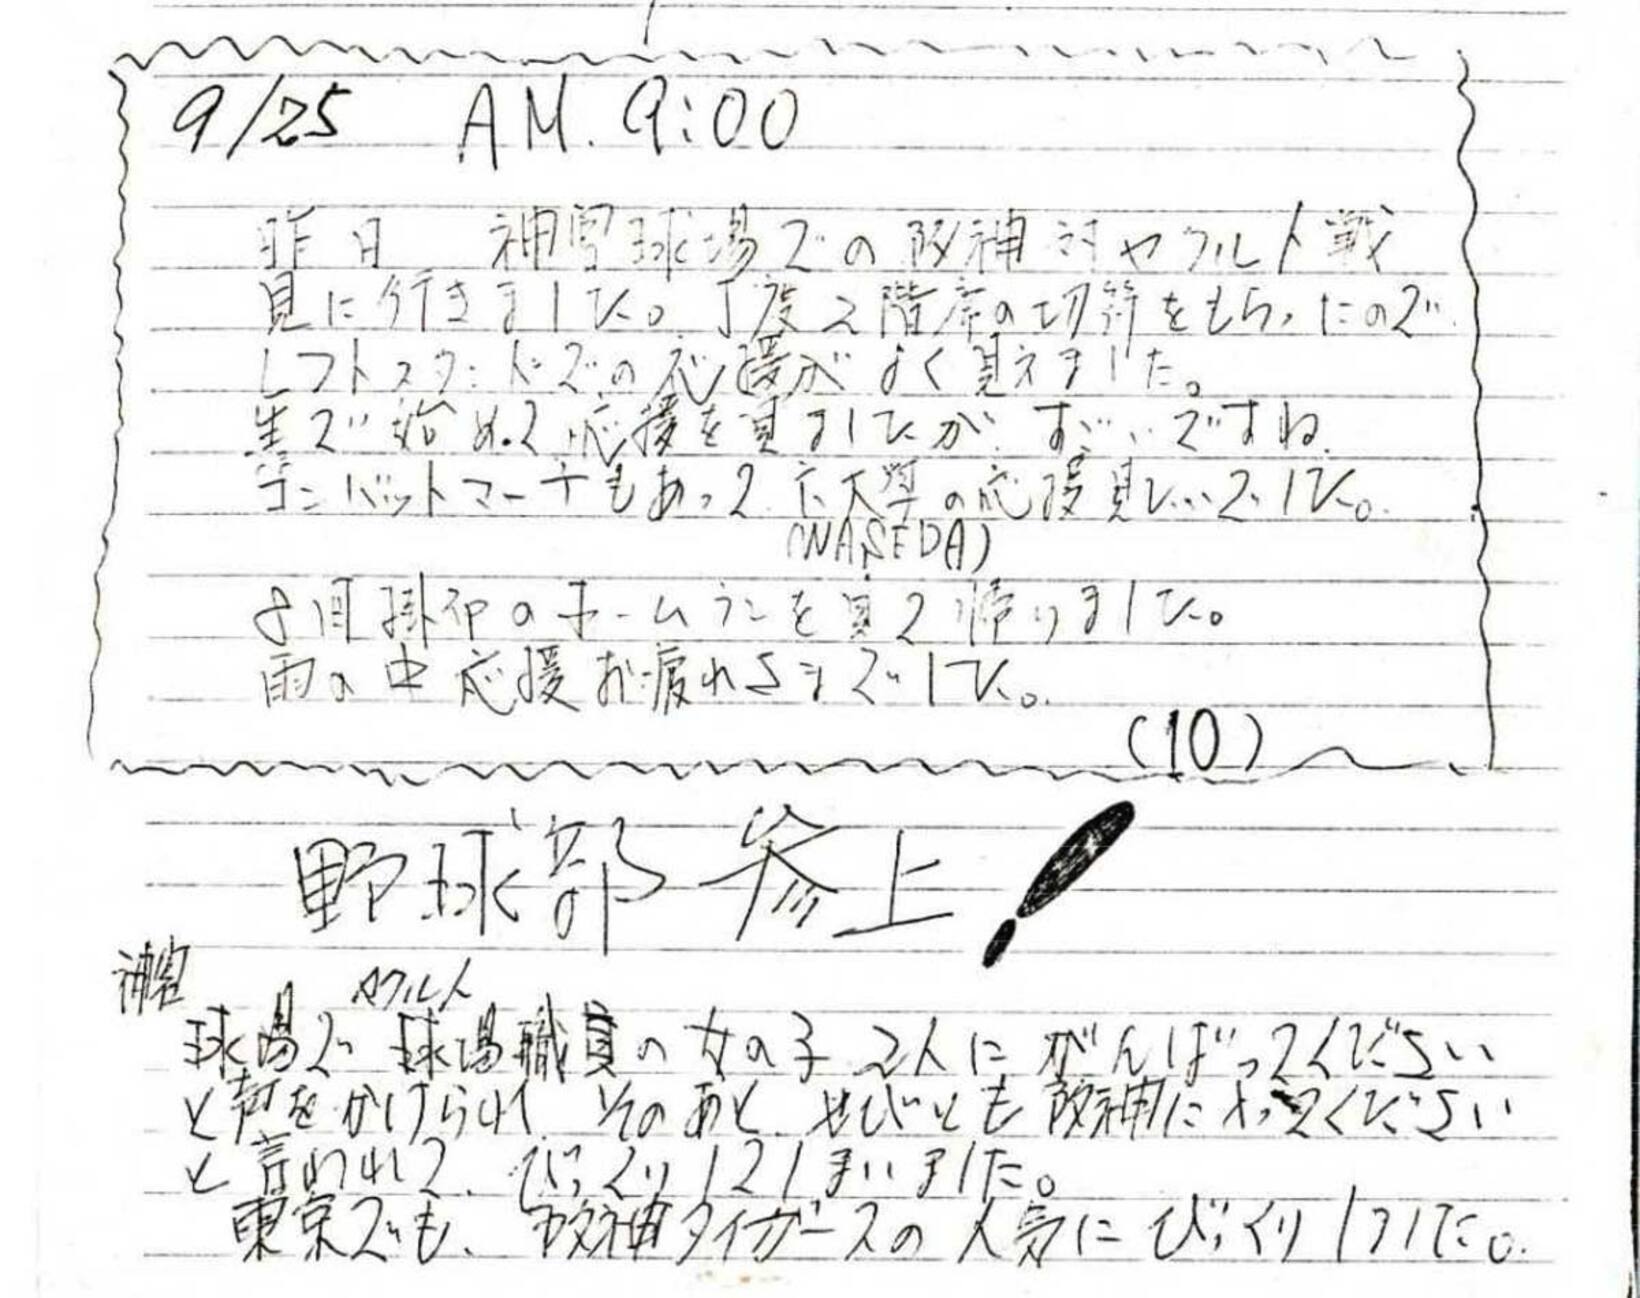 9/25 AM. 9:00
昨日 神宮球場での阪神対ヤクルト戦
見に行きました。丁度2階席の切符をもらったので
レフトスタンドでの応援がよく見えました。
生で始めて応援を見ましたが、すごいですね
コンバットマーチもあって、六大学の応援見たいでした。
(WASEDA)
8回掛布のホームランを見て帰りました。
雨の中応援お疲れさまでした。
(10)
野球部 参上!
神宮
ヤクルト
球場で 球場職員の女の子 2人に がんばってください
と声をかけられ そのあと ぜひとも 阪神に かってください
と言われて、びっくりしてしまいました。
東京でも、阪神タイガースの人気にびっくりしました。